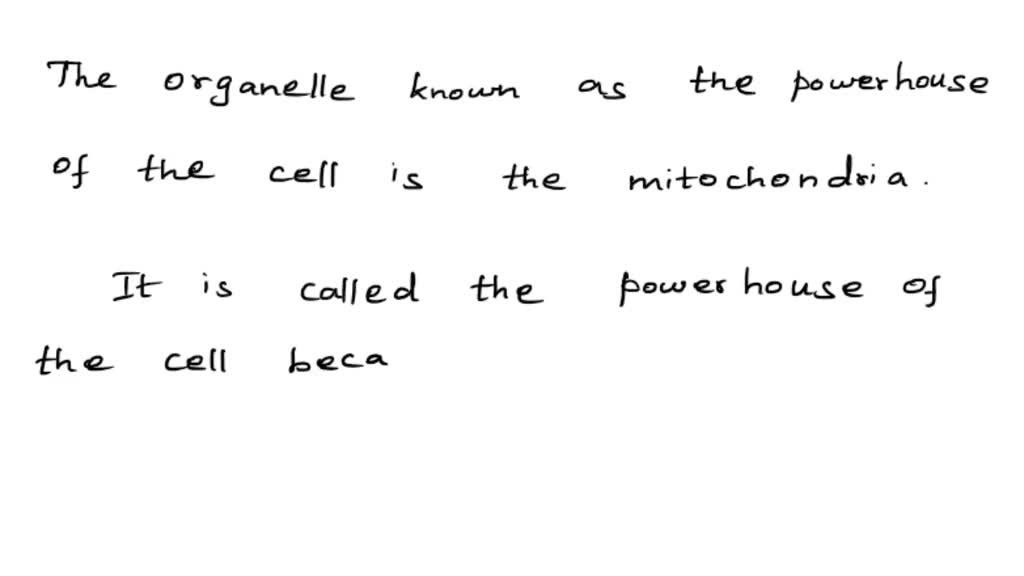 The organelle known as the powerhouse
of the cell is the mitochondria.
It is called the powerhouse of
the cell beca